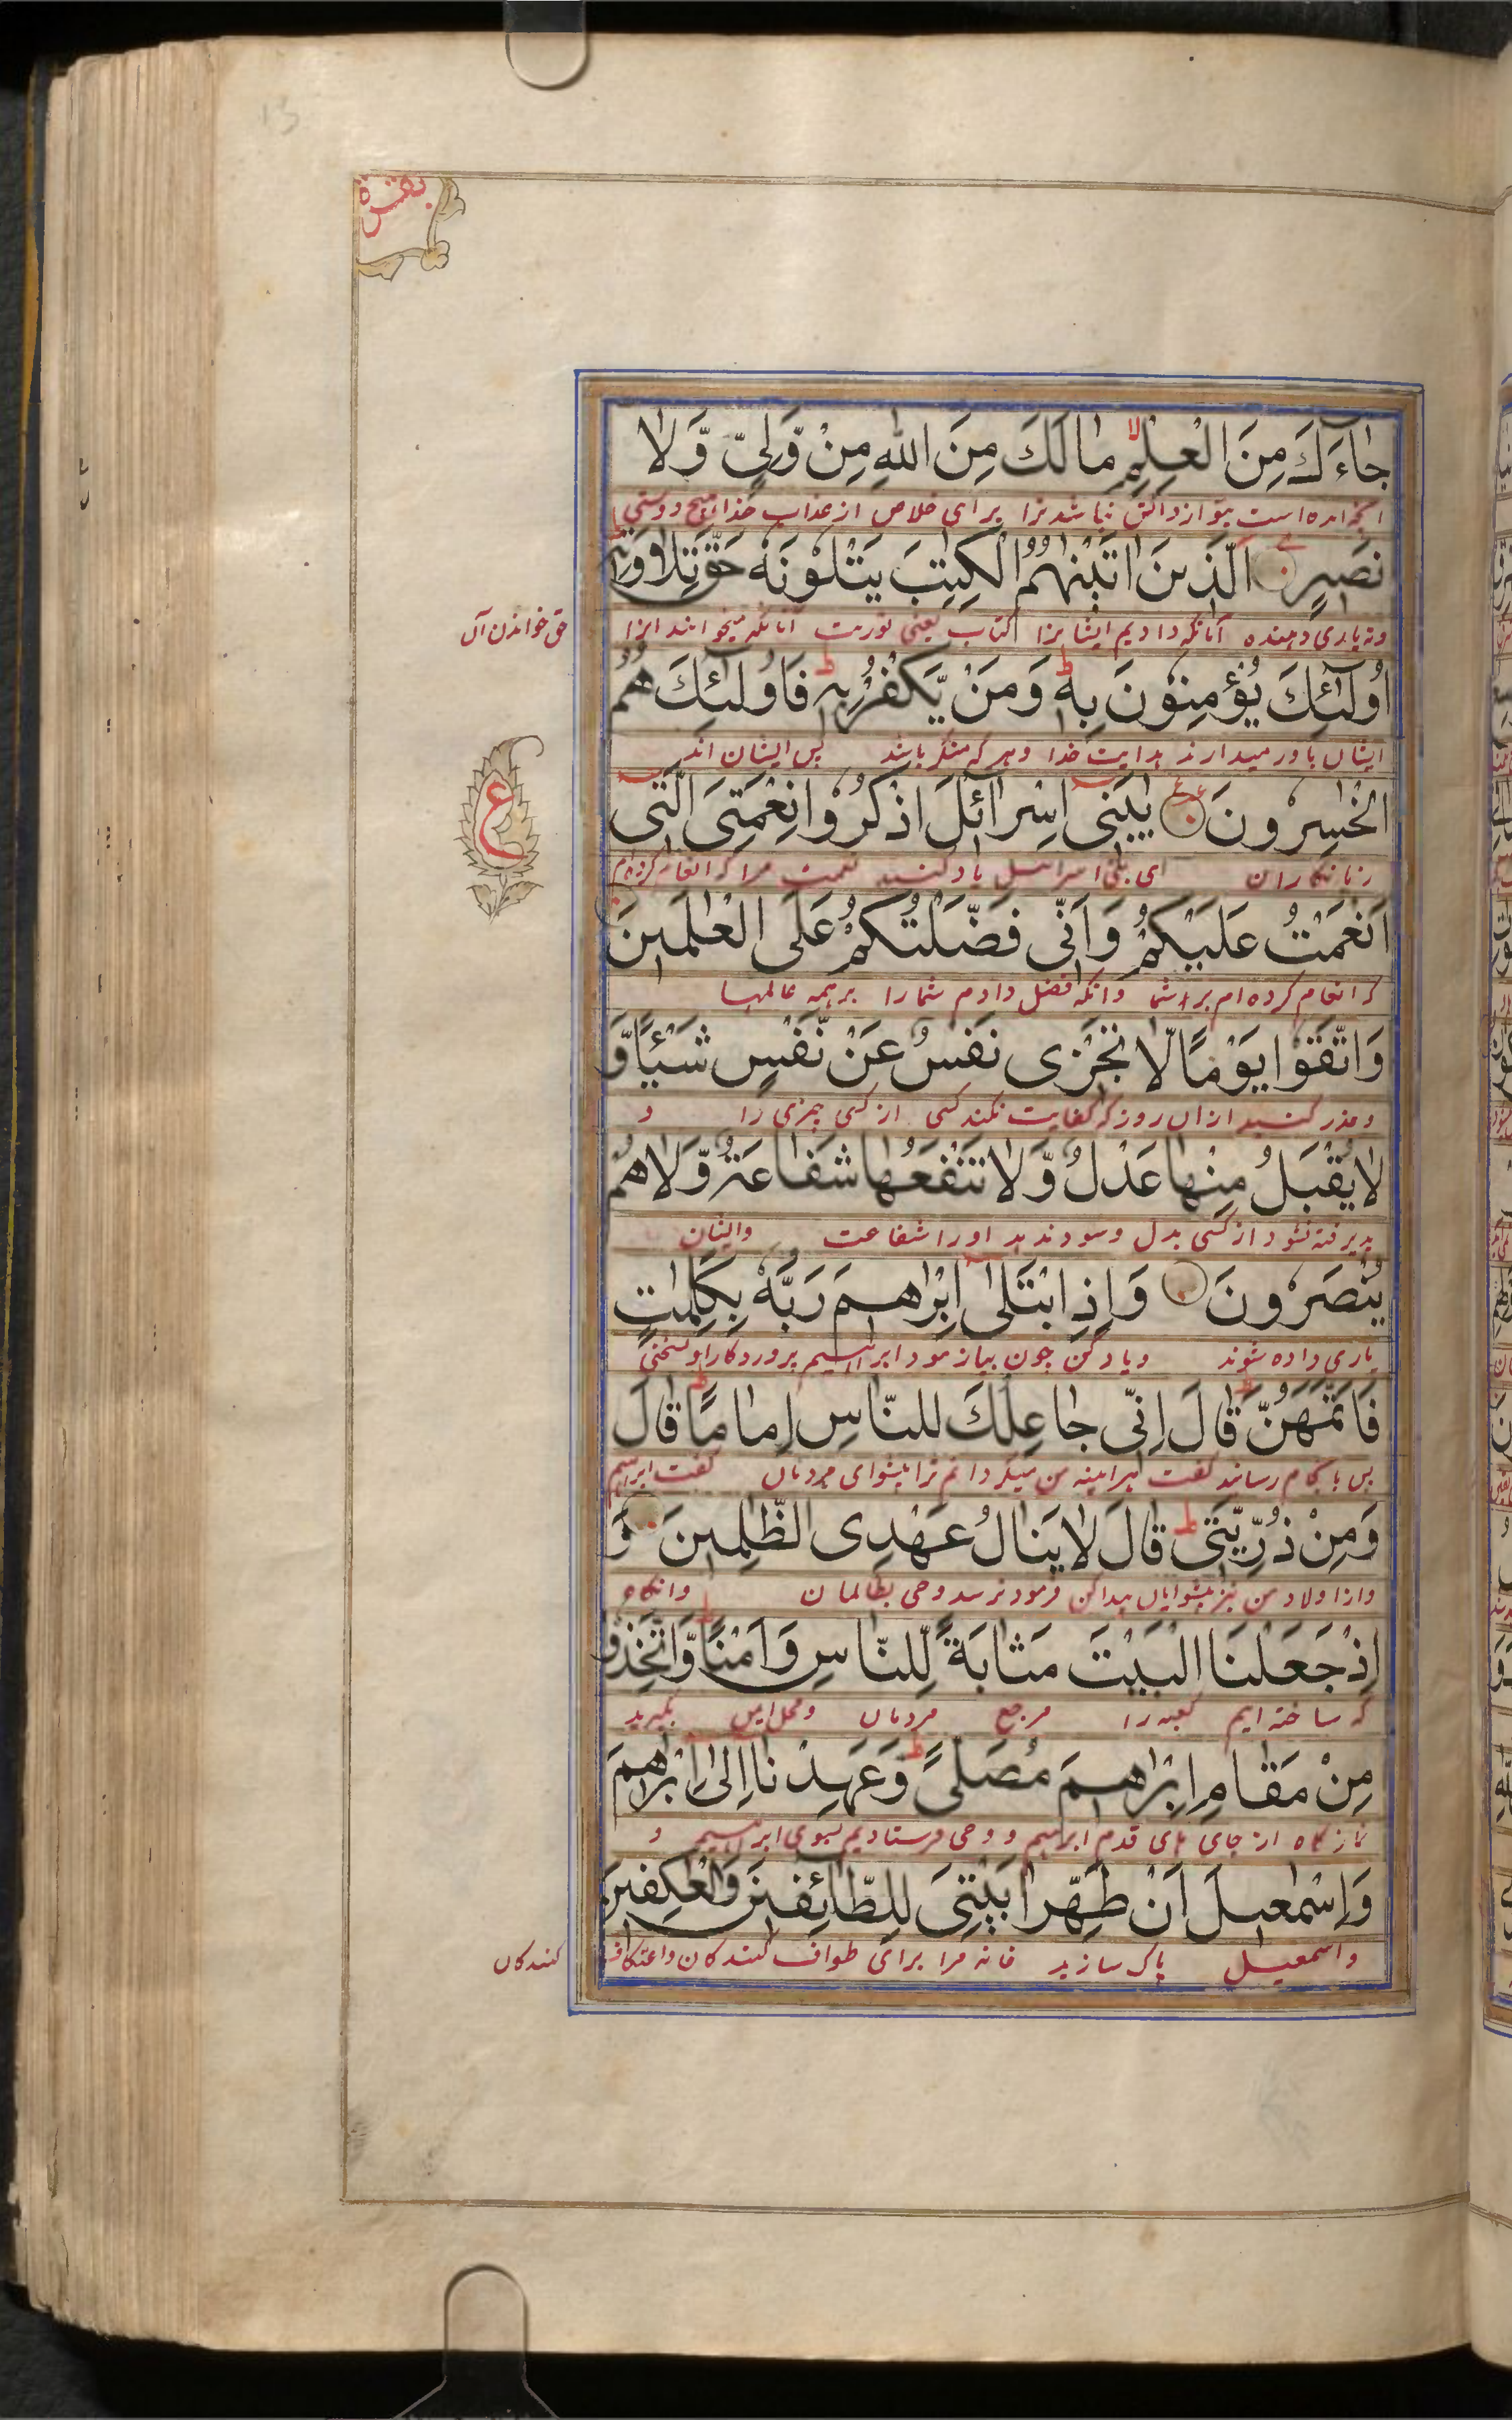 13
بقرة
جٰاءَكَ مِنَ الْعِلْمِ لا مٰا لَكَ مِنَ اللهِ مِنْ وَّلِیٍّ وَّلٰا
آنچه آمده است بتو از دانش نباشد ترا برای خلاص از عذاب خدا هیچ دوستی
نَصِیرٍ الَّذِینَ اٰتَیْنٰهُمُ الْكِتٰبَ یَتْلُوْنَهٗ حَقَّ تِلٰاوَتِهٖ ط
ونه یاری دهنده آنانکه دادیم ایشانرا کتاب یعنی توریت آنانکه میخوانند انرا
حق خواندن آں
اُولٰئِكَ یُؤْمِنُوْنَ بِهٖ ط وَمَنْ یَّكْفُرْ بِهٖ ط فَاُولٰئِكَ هُمُ
ایشاں باور میدارند هدایت خدا وهر که منکر باشد پس ایشان اند
الْخٰسِرُونَ یٰبَنِی اِسْرٰائِلَ اذْكُرُوا نِعْمَتِیَ الَّتِی
ع
زیانکاران ای بنی اسرائیل یاد کنید نعمت مرا که انعام کرده‌ام
اَنْعَمْتُ عَلَیْكُمْ وَاَنِّی فَضَّلْتُكُمْ عَلَی الْعٰلَمِینَ
که انعام کرده ام بر شما وانکه فضل دادم شما را بر همه عالمها
وَاتَّقُوا یَوْمًا لّٰا تَجْزِی نَفْسٌ عَنْ نَّفْسٍ شَیْئًا وَّ
وحذر کنید ازان روز که کفایت نکند کسی از کسی چیزی را و
لٰا یُقْبَلُ مِنْهٰا عَدْلٌ وَّلٰا تَنْفَعُهٰا شَفٰاعَةٌ وَّلٰا هُمْ
پذیرفته نشود از کسی بدل وسود ندهد اورا شفاعت وایشان
یُنْصَرُونَ وَاِذِ ابْتَلٰی اِبْرٰاهِمَ رَبُّهٗ بِكَلِمٰاتٍ
یاری داده شوند ویاد کن چون بیازمود ابراهیم پروردکار او بسخنی
فَاَتَمَّهُنَّ ط قَالَ اِنِّی جٰاعِلُكَ لِلنّٰاسِ اِمٰامًا ط قٰالَ
پس باتمام رسانید کفت هراینه من میکردانم ترا پیشوای مردماں کفت ابراهیم
وَمِنْ ذُرِّیَّتِی ط قٰالَ لٰا یَنٰالُ عَهْدِی الظّٰلِمِینَ وَ
واز اولاد من نیز پیشوایاں پیدا کن فرمود نرسد وحی بظالمان وانکاه
اِذْ جَعَلْنَا الْبَیْتَ مَثٰابَةً لِّلنّٰاسِ وَاَمْنًا ط وَّاتَّخِذُوا
که ساخته ایم کعبه را مرجع مردماں ومحل امن بکیرید
مِنْ مَقٰامِ اِبْرٰهِمَ مُصَلًّی ط وَعَهِدْنٰا اِلٰی اِبْرٰهِمَ
نمازکاه از جای پای قدم ابراهیم ووحی فرستادیم بسوی ابراهیم و
وَاِسْمٰعِیلَ اَنْ طَهِّرٰا بَیْتِیَ لِلطّٰائِفِینَ وَالْعٰكِفِینَ
واسمعیل پاک سازید خانه مرا برای طواف کنندکان واعتکاف
کنندکاں